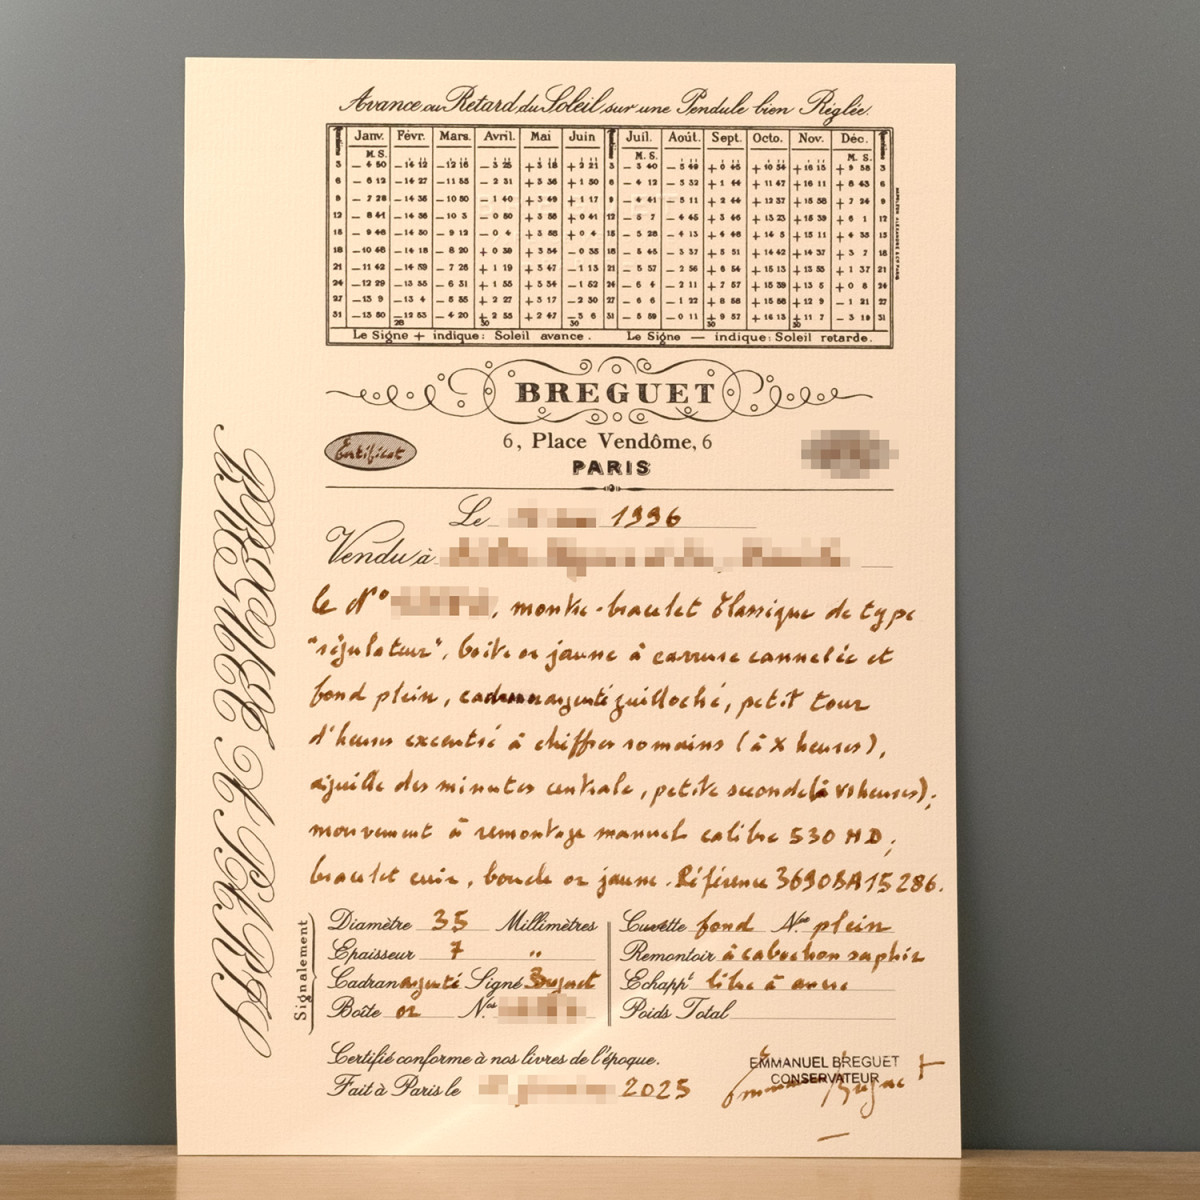 Avance ou Retard du Soleil sur une Pendule bien Réglée.
Janv. Févr. Mars. Avril. Mai Juin Juil. Août. Sept. Octo. Nov. Déc.
M. S. M. S. M. S.
3 — 4 50 — 14 12 — 12 16 — 3 25 + 3 18 + 2 21 3 — 3 40 — 5 49 + 0 45 + 10 54 + 16 15 + 9 58 3
6 — 6 12 — 14 27 — 11 55 — 2 31 + 3 36 + 1 50 6 — 4 12 — 5 32 + 1 44 + 11 47 + 16 11 + 8 43 6
9 — 7 28 — 14 36 — 10 50 — 1 40 + 3 49 + 1 17 9 — 4 41 — 5 11 + 2 44 + 12 37 + 15 58 + 7 24 9
12 — 8 41 — 14 36 — 10 3 — 0 50 + 3 56 + 0 41 12 — 5 7 — 4 45 + 3 46 + 13 23 + 15 39 + 6 1 12
15 — 9 46 — 14 30 — 9 12 — 0 4 + 3 58 + 0 4 15 — 5 28 — 4 13 + 4 48 + 14 5 + 15 11 + 4 35 15
18 — 10 46 — 14 18 — 8 20 + 0 39 + 3 54 — 0 35 18 — 5 45 — 3 37 + 5 51 + 14 42 + 14 37 + 3 7 18
21 — 11 42 — 14 59 — 7 26 + 1 19 + 3 47 — 1 13 21 — 5 57 — 2 56 + 6 54 + 15 13 + 13 55 + 1 37 21
24 — 12 29 — 13 35 — 6 31 + 1 55 + 3 34 — 1 52 24 — 6 4 — 2 11 + 7 57 + 15 39 + 13 5 + 0 8 24
27 — 13 9 — 13 4 — 5 35 + 2 27 + 3 17 — 2 30 27 — 6 6 — 1 22 + 8 58 + 15 58 + 12 9 — 1 21 27
31 — 13 50 — 12 53 — 4 20 + 2 55 + 2 47 — 3 6 31 — 5 59 — 0 11 + 9 57 + 16 13 + 11 7 — 3 19 31
28 30 30 30 30
Le Signe + indique: Soleil avance. Le Signe — indique: Soleil retarde.
BREGUET
Certificat
6, Place Vendôme, 6
PARIS
Le 1996
Vendu à
le N° , montre-bracelet Classique de type
"régulateur", boîte or jaune à carrure cannelée et
fond plein, cadran argenté guilloché, petit tour
d'heures excentré à chiffres romains (à X heures),
aiguille des minutes centrale, petite seconde (à VI heures);
mouvement à remontage manuel calibre 530 HD;
bracelet cuir, boucle or jaune. Référence 3690BA15286.
Signalement
Diamètre 35 Millimètres
Epaisseur 7 "
Cadran argenté Signé Breguet
Boîte or Nos
Cuvette fond Nos plein
Remontoir à cabochon saphir
Echappt libre à ancre
Poids Total
Certifié conforme à nos livres de l'époque.
Fait à Paris le 2025
EMMANUEL BREGUET
CONSERVATEUR